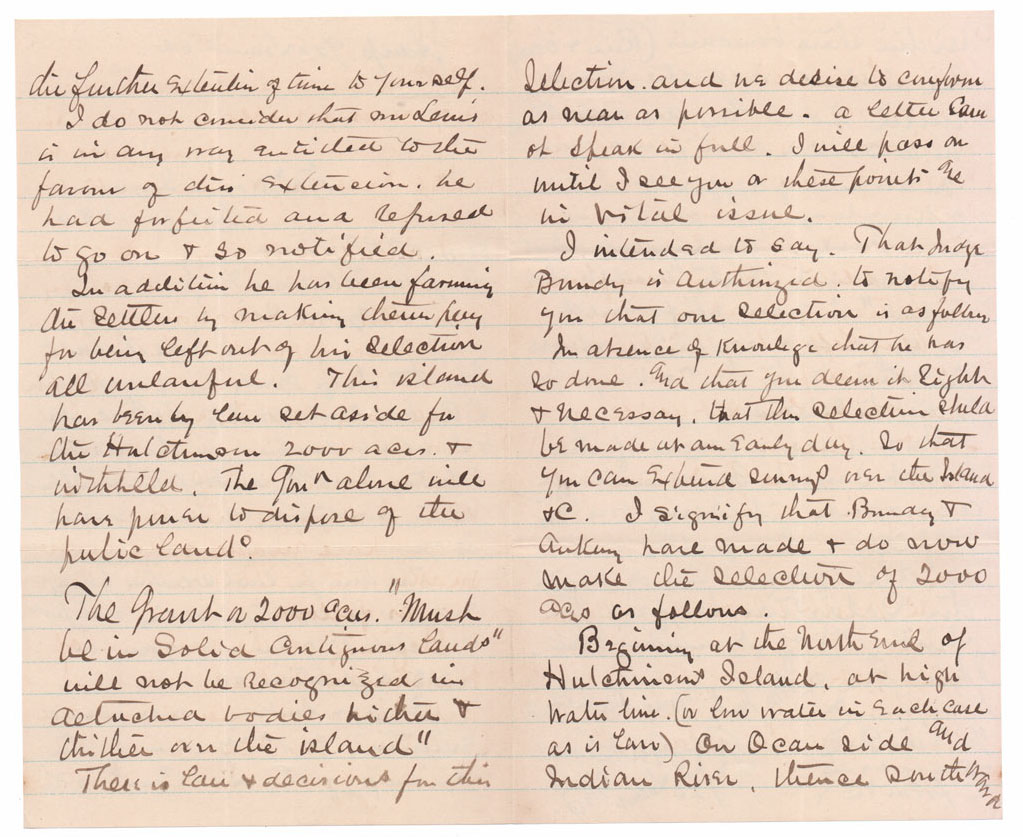 the further Extention of time to yourself.
I do not consider that Mr Lewis
is in any way entitled to the
favour of this Extension. he
had forfeited and refused
to go on & so notified.
In addition he has been farming
the Settlers by making them pay
for being left out of his Selection
all unlawful. This island
has been by law set aside for
the Hutchinson 2000 acres. &
withheld. The Govt alone will
have power to dispose of the
public lands.
The Grant or 2000 acres. "Must
be in Solid Contiguous lands"
will not be recognized in
detached bodies hither &
thither over the island"
There is law & decisions for this
Selection. and we desire to conform
as near as possible. a letter
ot Speak in full. I will pass on
until I see you or these points are
in vital issue.
I intended to say. That Judge
Bundy is authorized. to notify
you that our selection is as follows
In absence of Knowlege that he has
so done. and that you deem it Right
& necessary, that the selection should
be made at an early day. So that
you can Extend survys over the Island
&c. I signify that Bundy &
Ankeny have made & do now
make the selection of 2000
acres as follows.
Beginning at the North End of
Hutchinsons Island, at high
Water line. (or low water in Each case
as is law) On Ocan side and
Indian River, thence Southward